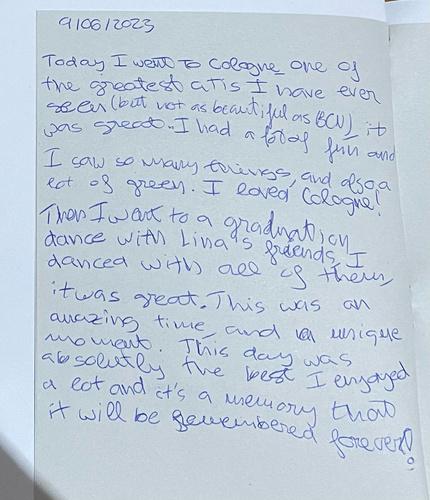 9/06/2023
Today I went to Cologne one of
the greatest citis I have ever
seen (but not as beautiful as BCN), it
was great. I had a lot of fun and
I saw so many things, and also a
lot of green. I loved Cologne!
Then I went to a graduation
dance with Lina's friends, I
danced with all of them,
it was great. This was an
amazing time, and a unique
moment. This day was
absolutly the best I enjoyed
a lot and it's a memory that
it will be remembered forever!